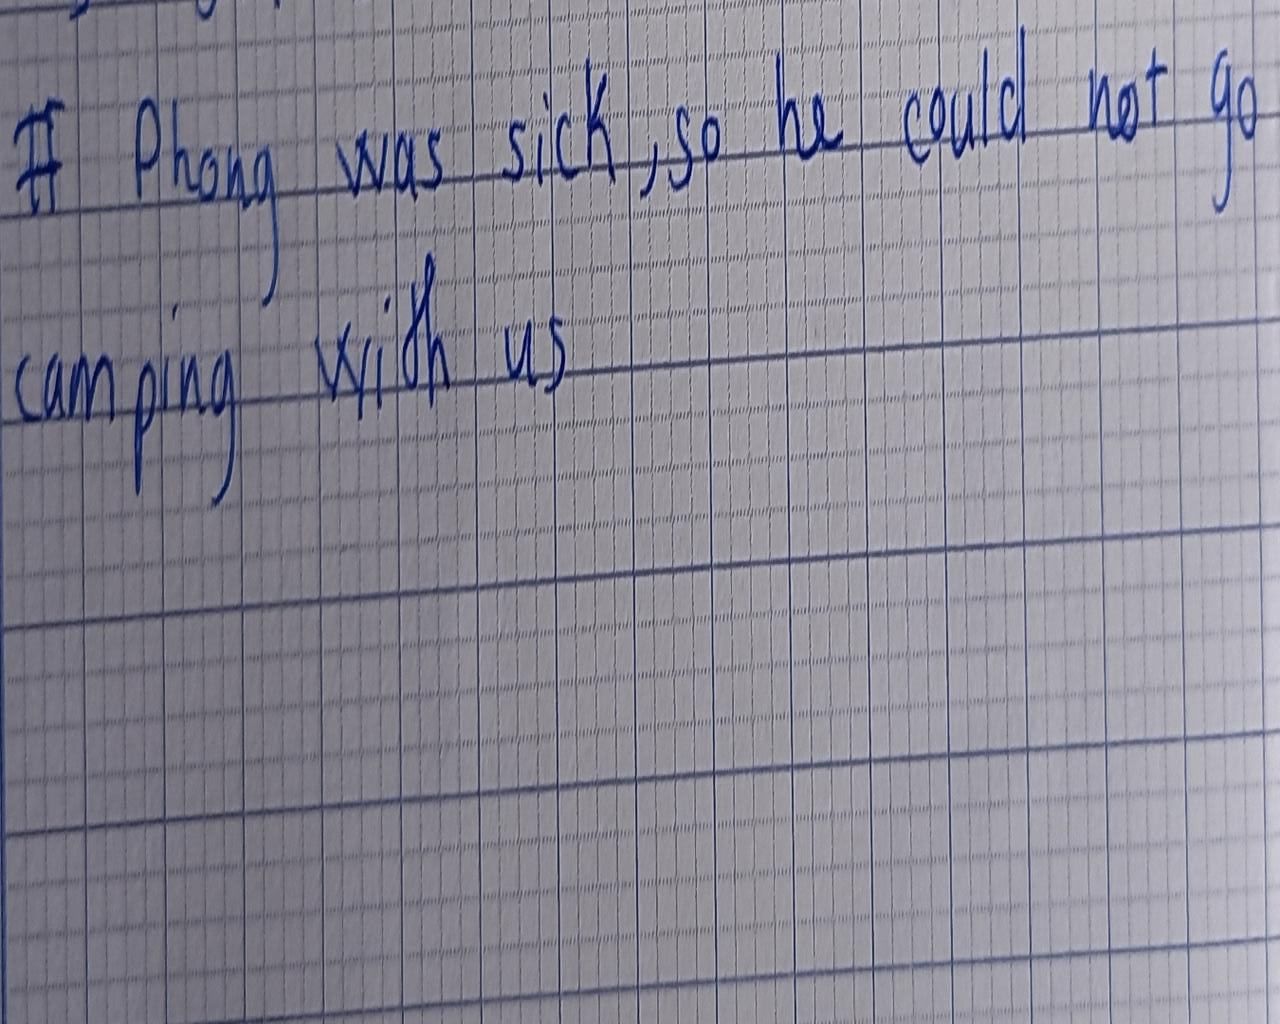 If Phong was sick, so he could not go
camping with us